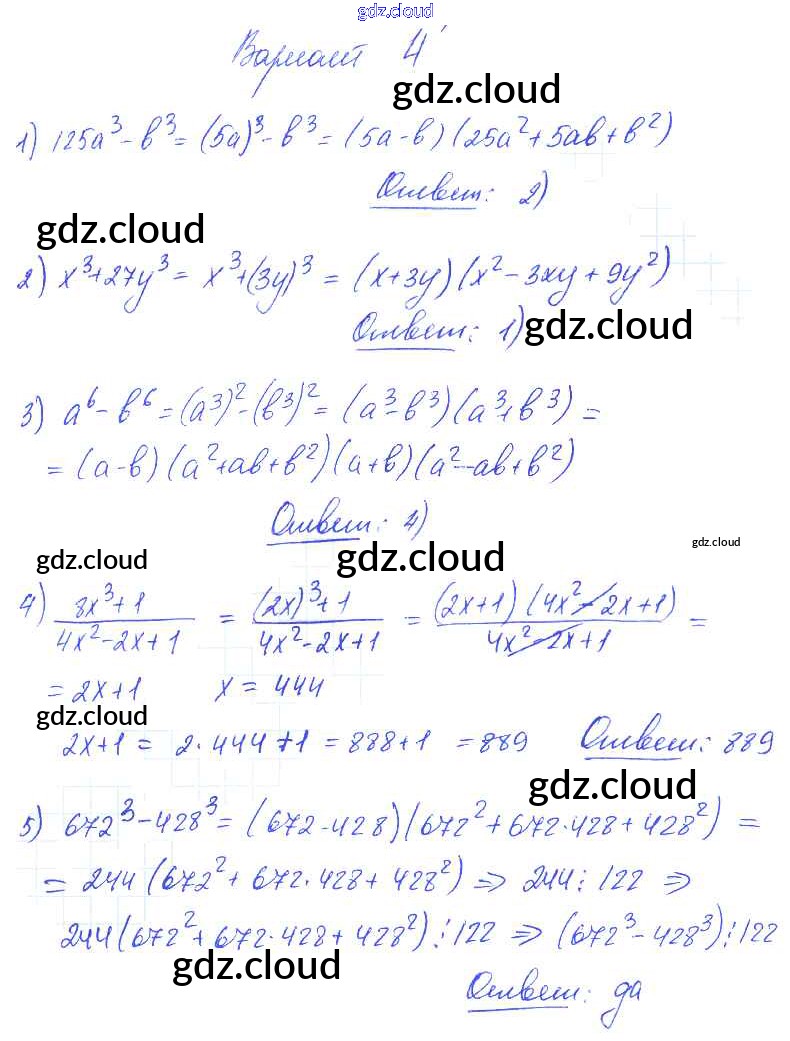 gdz.cloud
Вариант 4
gdz.cloud
1) 125a³ - b³ = (5a)³ - b³ = (5a - b) (25a² + 5ab + b²)
Ответ: 2)
gdz.cloud
2) x³ + 27y³ = x³ + (3y)³ = (x + 3y) (x² - 3xy + 9y²)
Ответ: 1) gdz.cloud
3) a⁶ - b⁶ = (a³)² - (b³)² = (a³ - b³) (a³ + b³) =
= (a - b) (a² + ab + b²) (a + b) (a² - ab + b²)
Ответ: 4)
gdz.cloud gdz.cloud gdz.cloud
4) (8x³ + 1)/(4x² - 2x + 1) = ((2x)³ + 1)/(4x² - 2x + 1) = ((2x + 1) (4x² - 2x + 1))/(4x² - 2x + 1) =
= 2x + 1 x = 444
gdz.cloud
2x + 1 = 2 · 444 + 1 = 888 + 1 = 889 Ответ: 889
gdz.cloud
5) 672³ - 428³ = (672 - 428) (672² + 672 · 428 + 428²) =
= 244 (672² + 672 · 428 + 428²) ⇒ 244 ⋮ 122 ⇒
244 (672² + 672 · 428 + 428²) ⋮ 122 ⇒ (672³ - 428³) ⋮ 122
gdz.cloud
Ответ: да